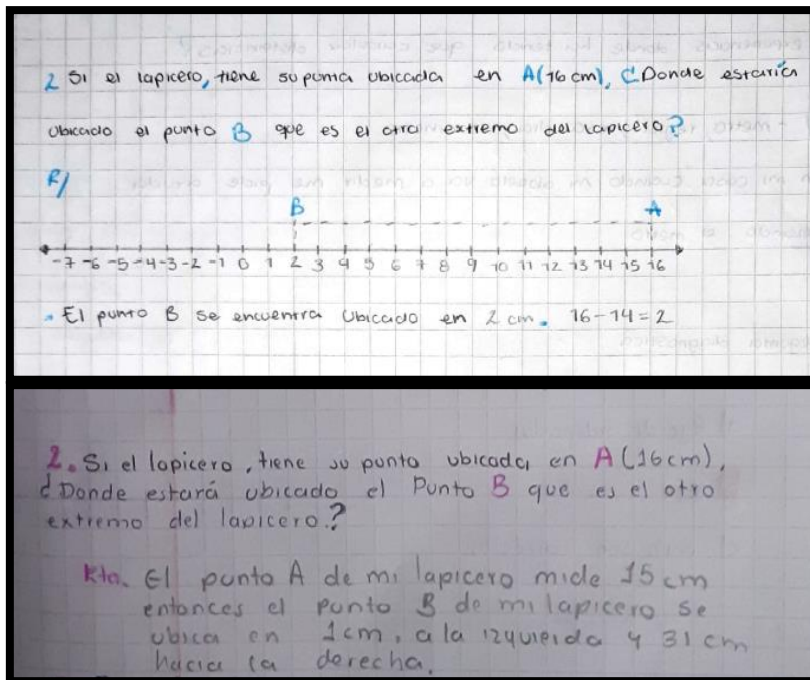 2 Si el lapicero, tiene su punta ubicada en A(16 cm), ¿Donde estaría
ubicado el punto B que es el otro extremo del lapicero?
R/
B A
-7 -6 -5 -4 -3 -2 -1 0 1 2 3 4 5 6 7 8 9 10 11 12 13 14 15 16
El punto B se encuentra ubicado en 2 cm. 16-14=2
2. Si el lapicero, tiene su punta ubicada en A(16cm),
¿Donde estará ubicado el Punto B que es el otro
extremo del lapicero?
Rta. El punto A de mi lapicero mide 15 cm
entonces el punto B de mi lapicero se
ubica en 1cm, a la izquierda y 31 cm
hacia la derecha.